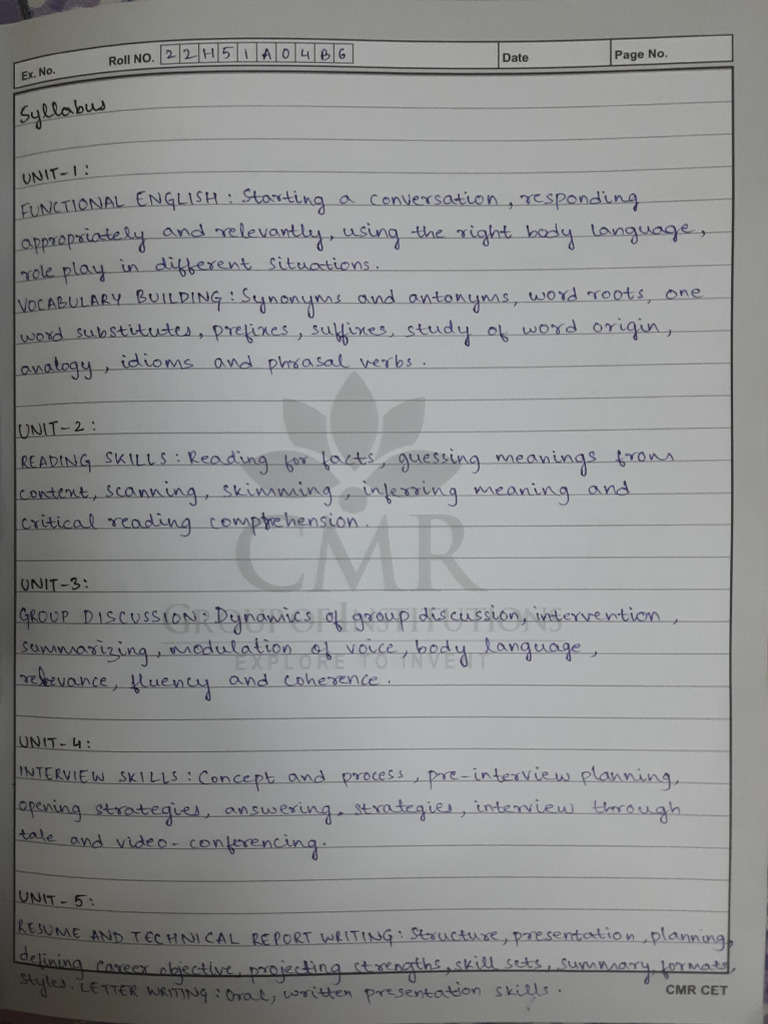 Ex. No. Roll NO. 22H51A04B6 Date Page No.
Syllabus
UNIT-1:
FUNCTIONAL ENGLISH: Starting a conversation, responding
appropriately and relevantly, using the right body language,
role play in different situations.
VOCABULARY BUILDING: Synonyms and antonyms, word roots, one
word substitutes, prefixes, suffixes, study of word origin,
analogy, idioms and phrasal verbs.
UNIT-2:
READING SKILLS: Reading for facts, guessing meanings from
context, scanning, skimming, inferring meaning and
critical reading comprehension.
CMR
UNIT-3:
GROUP DISCUSSION: Dynamics of group discussion, intervention,
GROUP OF INSTITUTIONS
summarizing, modulation of voice, body language,
EXPLORE TO INVENT
relevance, fluency and coherence.
UNIT-4:
INTERVIEW SKILLS: Concept and process, pre-interview planning,
opening strategies, answering. strategies, interview through
tale and video-conferencing.
UNIT-5:
RESUME AND TECHNICAL REPORT WRITING: Structure, presentation, planning,
defining career objective, projecting strengths, skill sets, summary, formats,
styles. LETTER WRITING: Oral, written presentation skills.
CMR CET